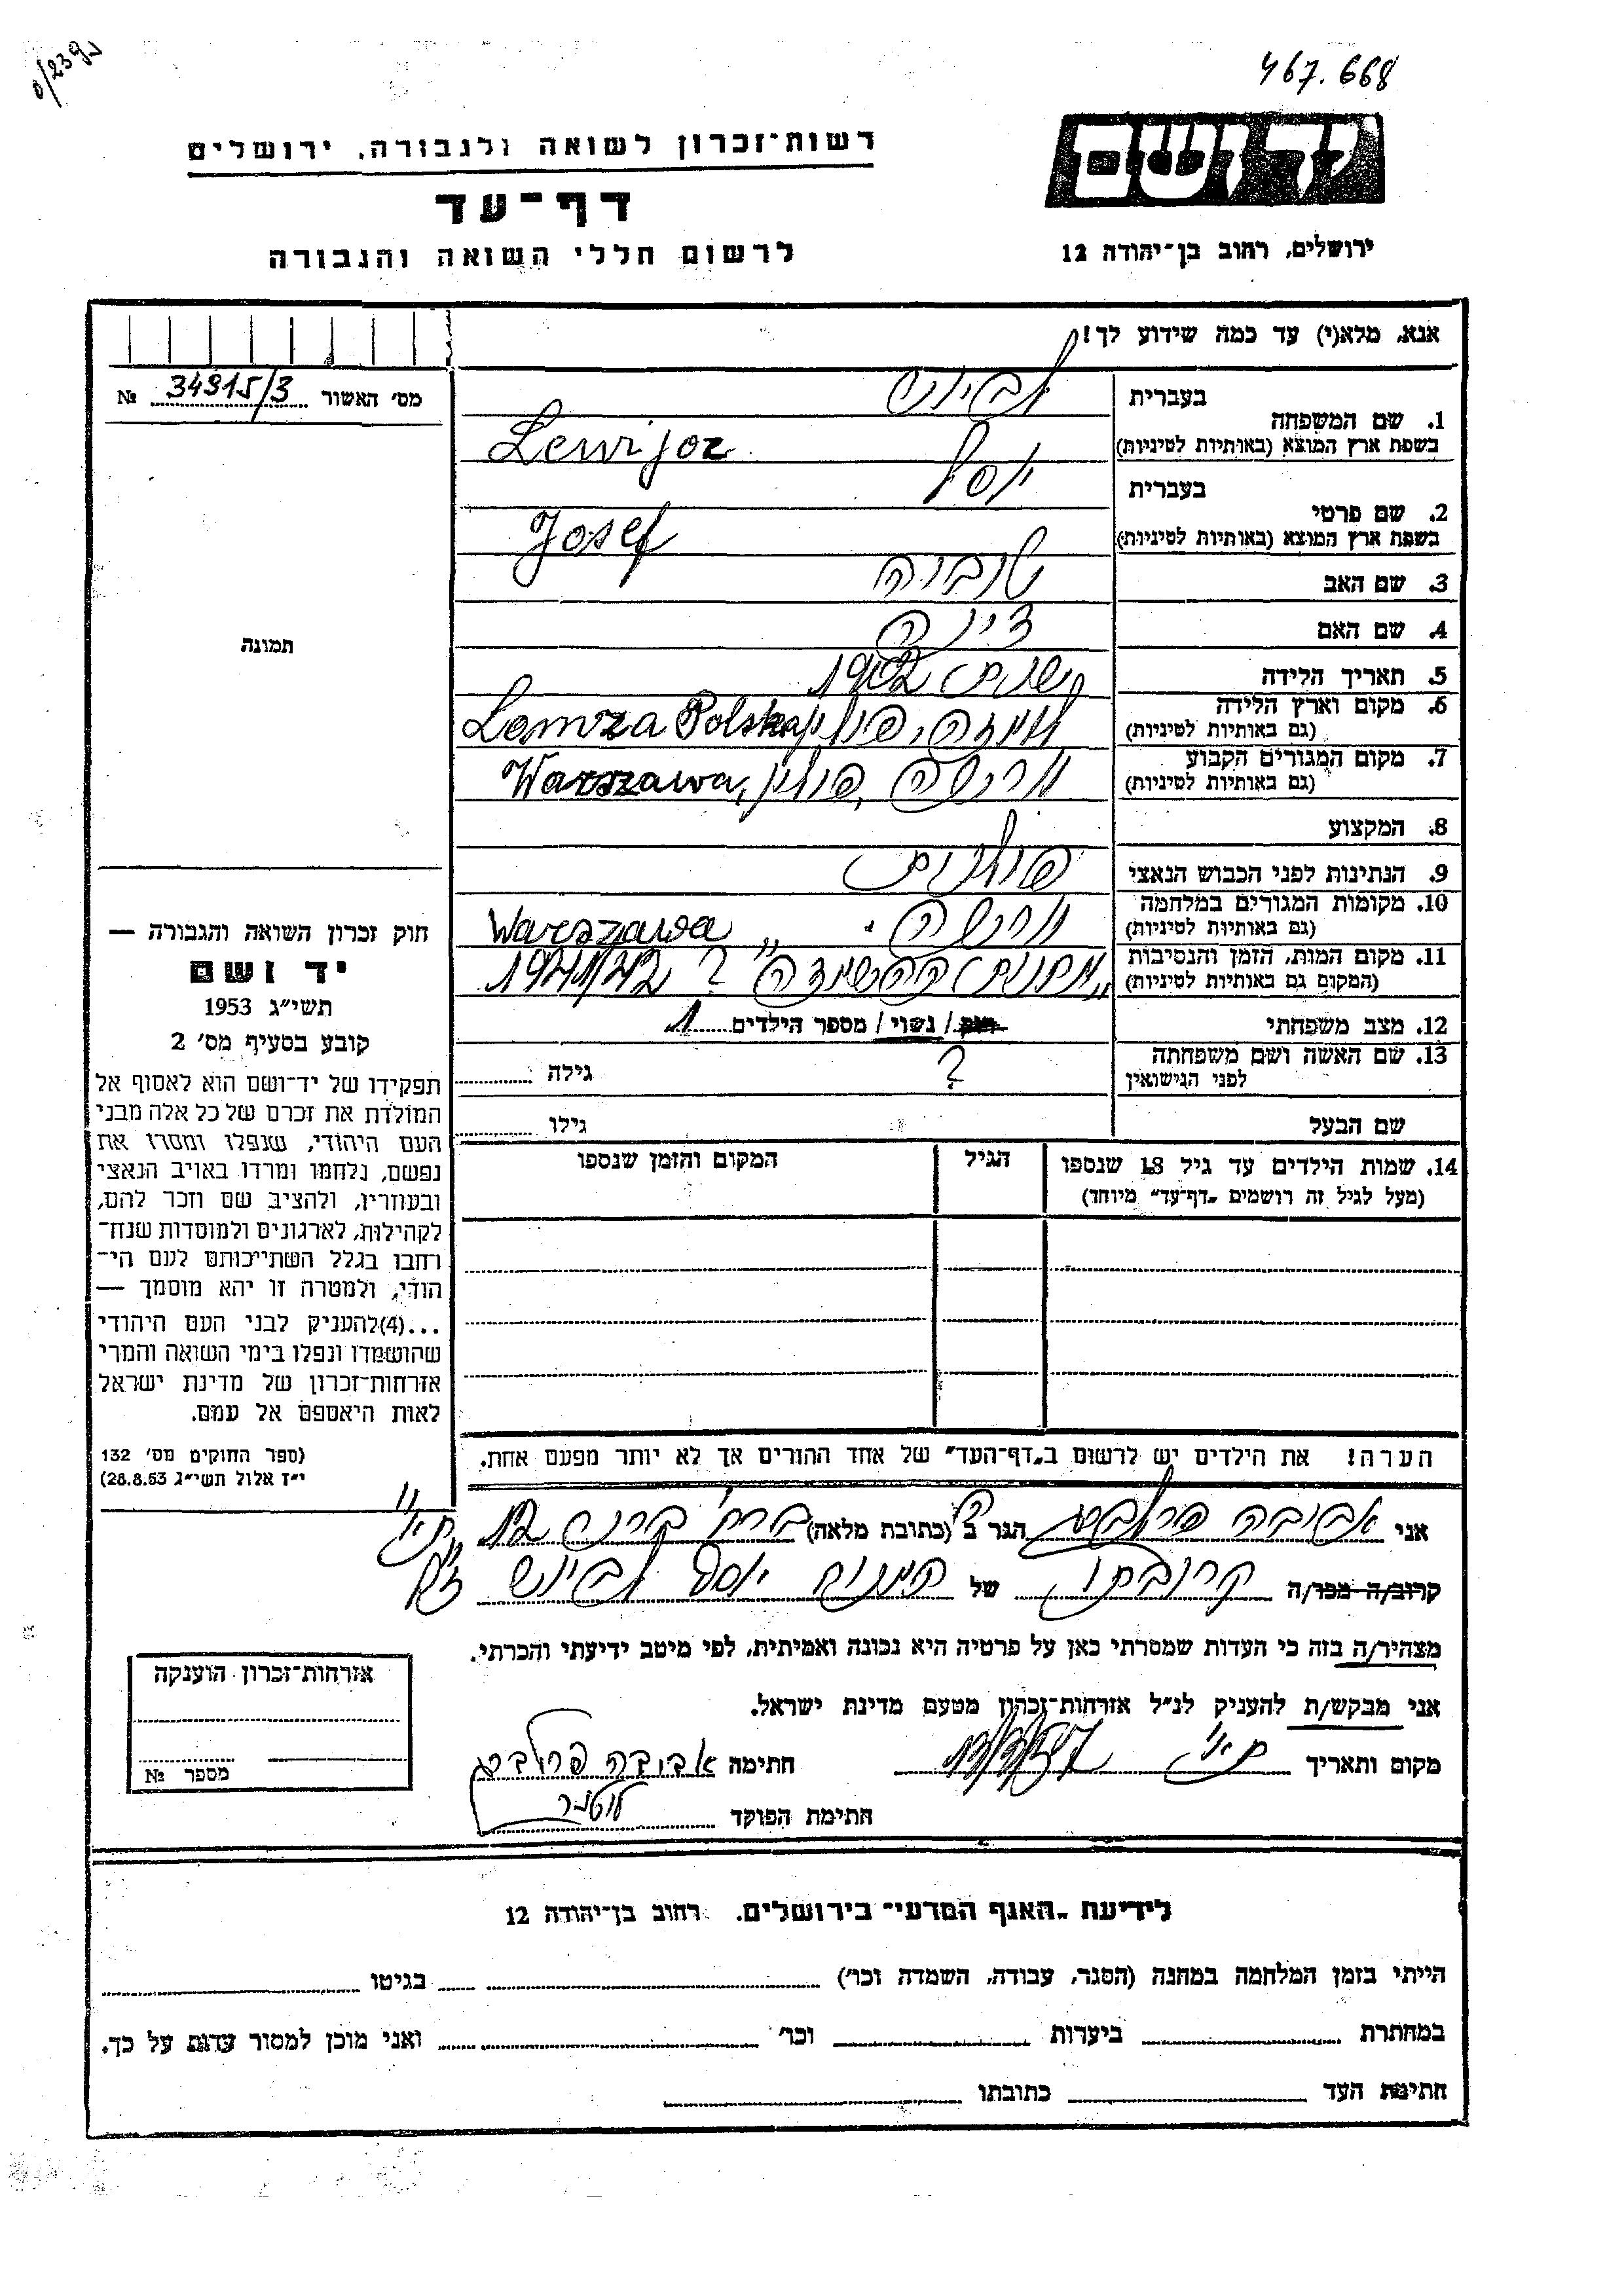 467.668
יד ושם
ירושלים, רחוב בן־יהודה 12
רשות־זכרון לשואה ולגבורה, ירושלים
דף־עד
לרשום חללי השואה והגבורה
אנא, מלא(י) עד כמה שידוע לך!
מס׳ האשור 34915/3 №
תמונה
1. שם המשפחה
בעברית
בשפת ארץ המוצא (באותיות לטיניות) Lewijoz
2. שם פרטי
בעברית יוסף
בשפת ארץ המוצא (באותיות לטיניות) Josef
3. שם האב טוביה
4. שם האם דינה
5. תאריך הלידה שנת 1902
6. מקום וארץ הלידה לומזה, פולין Lomza Polska
(גם באותיות לטיניות)
7. מקום המגורים הקבוע ורשה, פולין, Warszawa
(גם באותיות לטיניות)
8. המקצוע
9. הנתינות לפני הכבוש הנאצי פולנית
10. מקומות המגורים במלחמה ורשה. Warszawa
(גם באותיות לטיניות)
11. מקום המות, הזמן והנסיבות „מחנות ההשמדה” ? 1941/42
(המקום גם באותיות לטיניות)
12. מצב משפחתי רווק/ נשוי/ מספר הילדים 1
13. שם האשה ושם משפחתה לפני הנישואין ? גילה
שם הבעל גילו
14. שמות הילדים עד גיל 18 שנספו
(מעל לגיל זה רושמים „דף־עד” מיוחד)
הגיל
המקום והזמן שנספו
הערה! את הילדים יש לרשום ב„דף־העד” של אחד ההורים אך לא יותר מפעם אחת.
חוק זכרון השואה והגבורה —
יד ושם
תשי״ג 1953
קובע בסעיף מס׳ 2
תפקידו של יד־ושם הוא לאסוף אל
המולדת את זכרם של כל אלה מבני
העם היהודי, שנפלו ומסרו את
נפשם, נלחמו ומרדו באויב הנאצי
ובעוזריו, ולהציב שם וזכר להם,
לקהילות, לארגונים ולמוסדות שנח־
רחבו בגלל השתייכותם לעם הי־
הודי, ולמטרה זו יהא מוסמך —
...(4)להעניק לבני העם היהודי
שהושמדו ונפלו בימי השואה והמרי
אזרחות־זכרון של מדינת ישראל
לאות היאספם אל עמם.
(ספר החוקים מס׳ 132
י״ז אלול תשי״ג 28.8.53)
אני אביבה הגר ב (כתובת מלאה) ת״א
קרוב/ה מכר/ה קרובתו של המנוח יוסף ז״ל
מצהיר/ה בזה כי העדות שמסרתי כאן על פרטיה היא נכונה ואמיתית, לפי מיטב ידיעתי והכרתי.
אני מבקש/ת להעניק לנ״ל אזרחות־זכרון מטעם מדינת ישראל.
מקום ותאריך ת״א חתימה אביבה
חתימת הפוקד
אזרחות־זכרון הוענקה
מספר №
לידיעת „האגף המדעי” בירושלים, רחוב בן־יהודה 12
הייתי בזמן המלחמה במחנה (הסגר, עבודה, השמדה וכר׳) בגיטו
במחתרת ביערות וכר׳ ואני מוכן למסור עדות על כך.
חתימת העד כתובתו